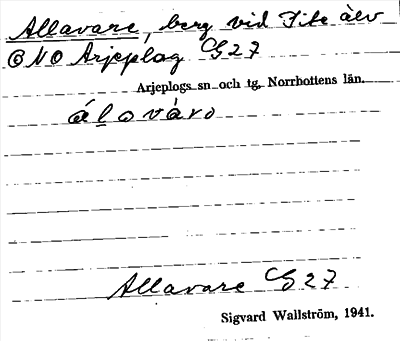 Allavare, berg vid Pite älv
@ NO Arjeplog C G 27
Arjeplogs sn och tg. Norrbottens län.
álovàro
Allavare C G 27
Sigvard Wallström, 1941.